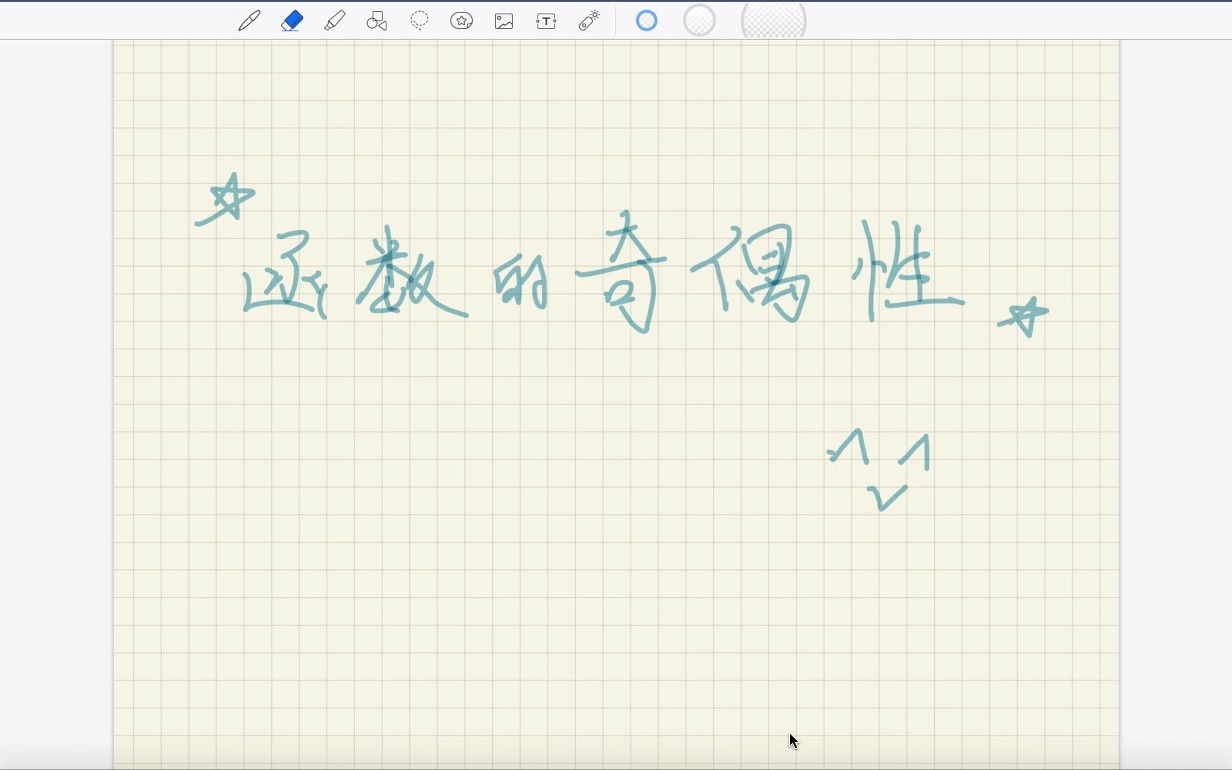 ☆函数的奇偶性☆